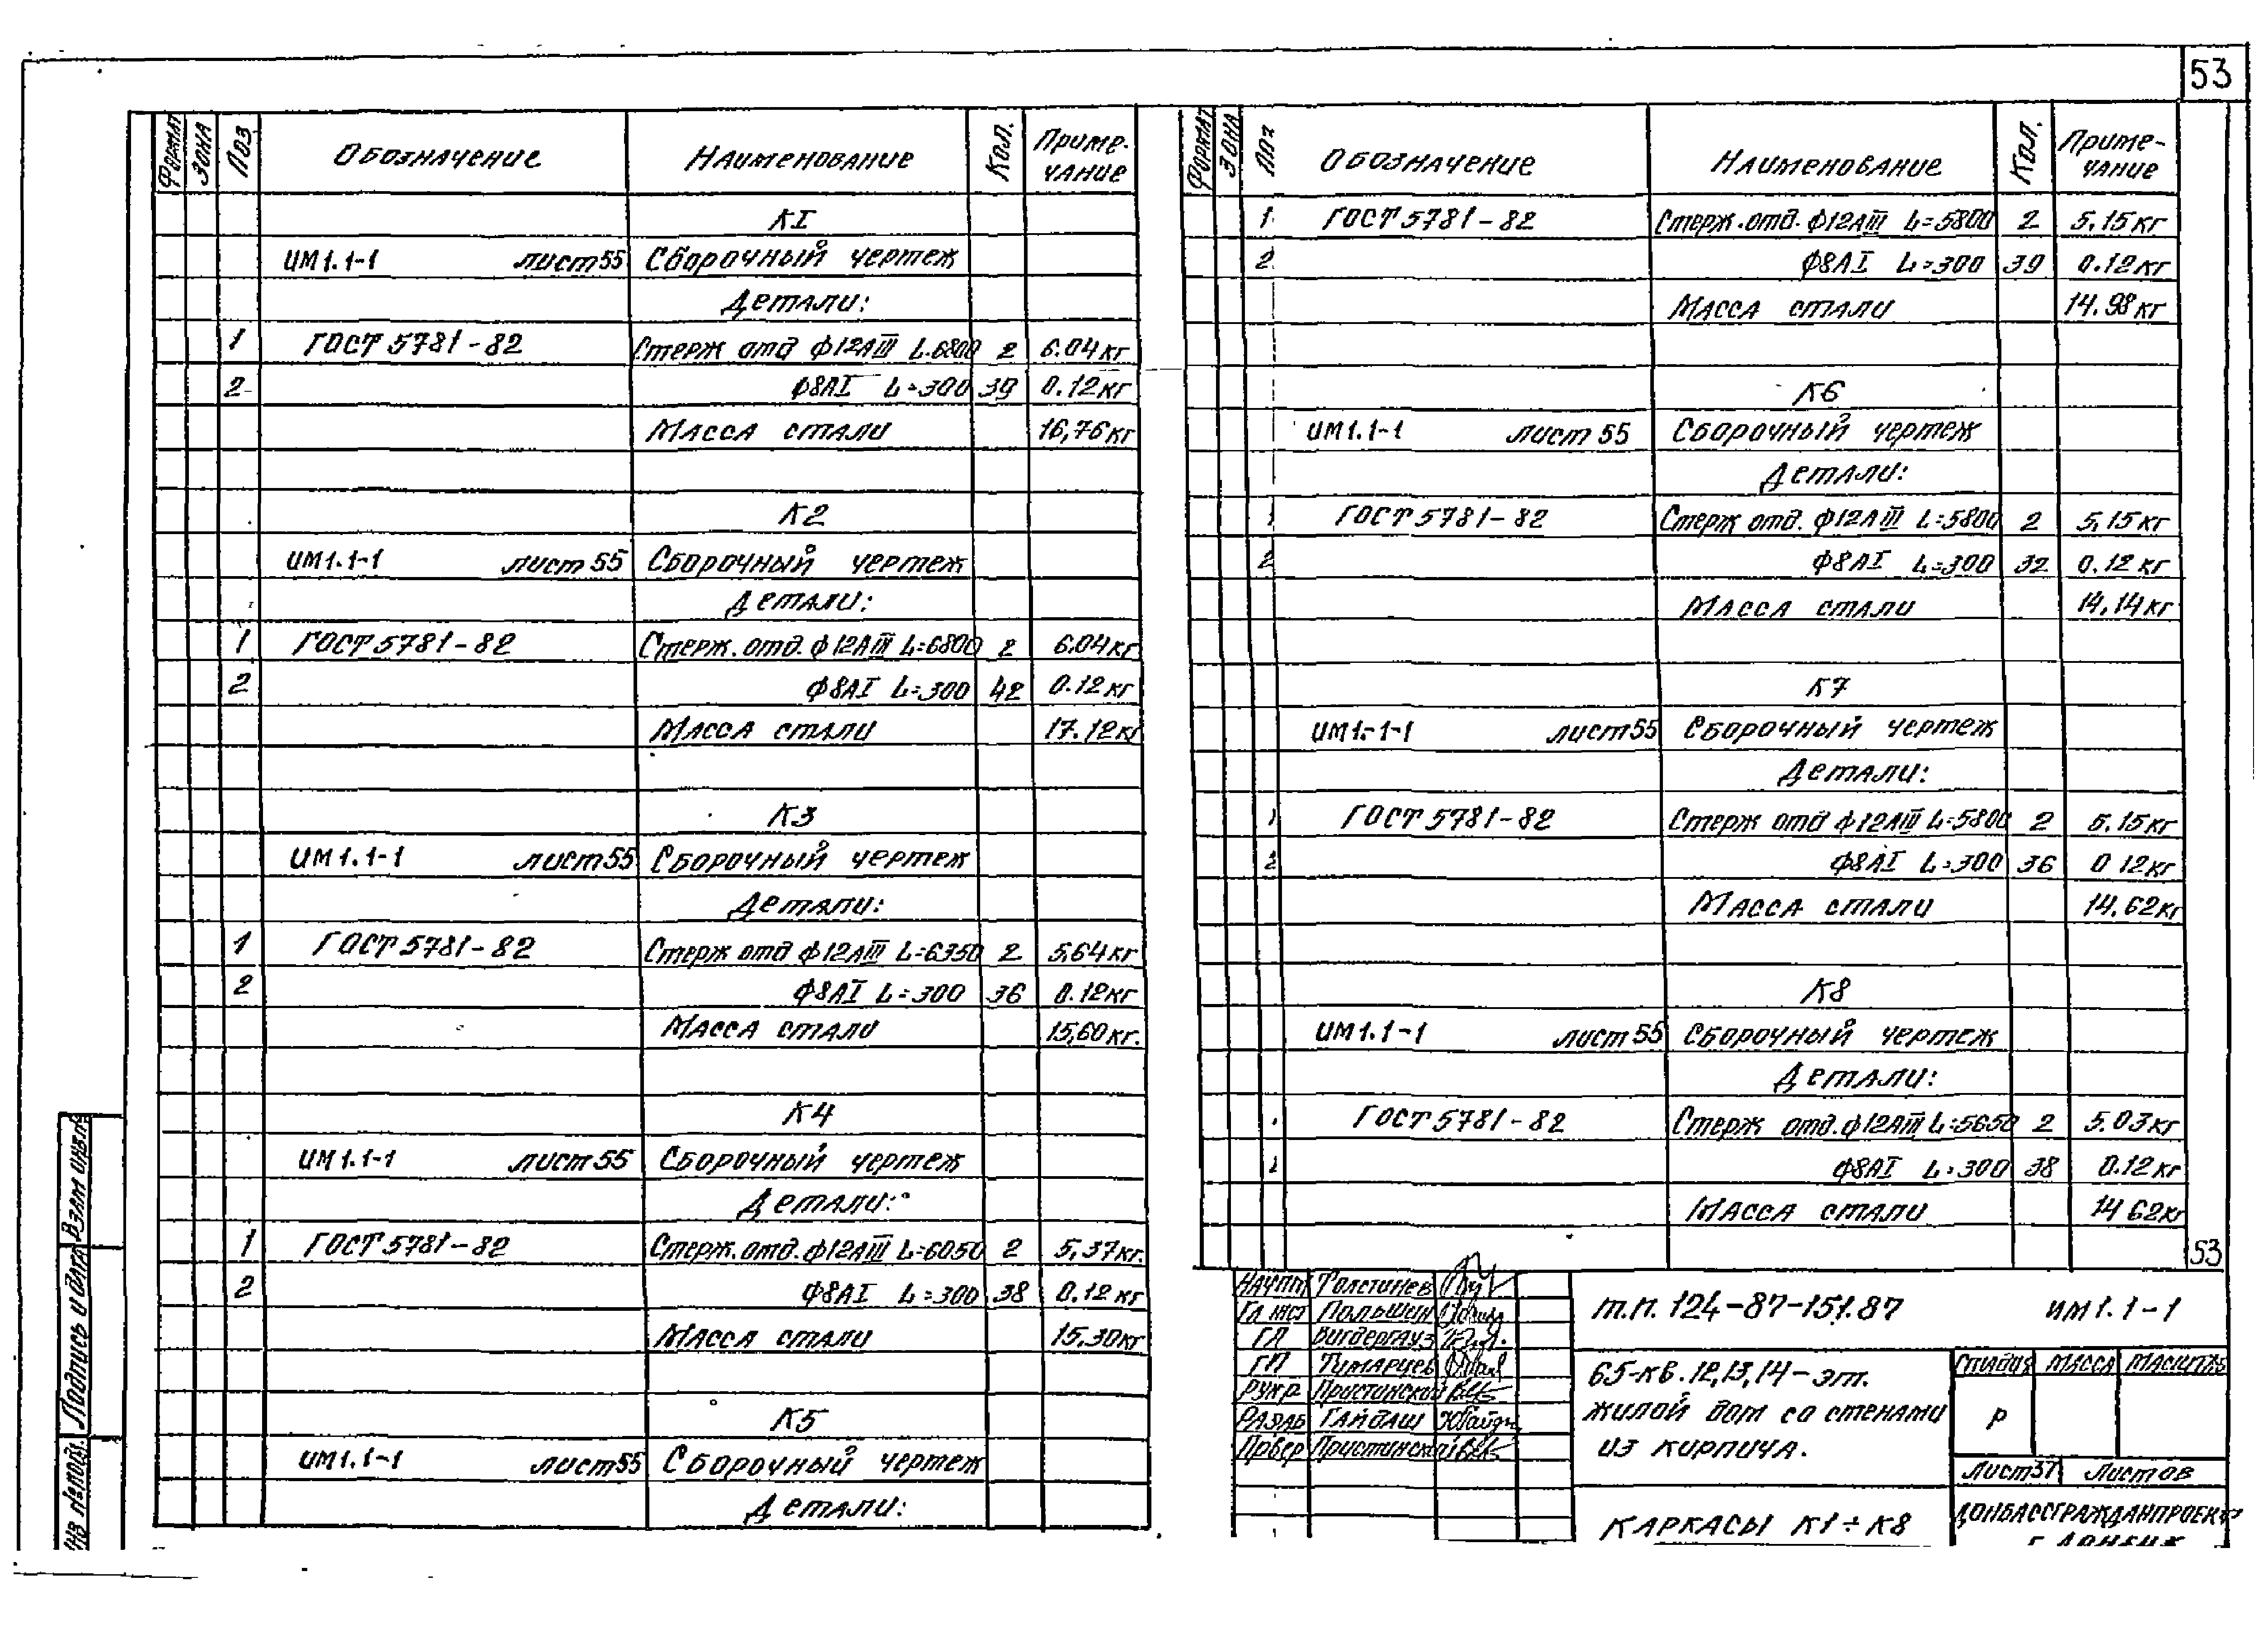 53
Формат Зона Поз Обозначение Наименование Кол. Приме-чание
К1
ИМ1.1-1 лист 55 Сборочный чертеж
Детали:
1 ГОСТ 5781-82 Стерж отд ф12АIII L.6800 2 6.04кг
2 ф8АI L=300 39 0.12кг
Масса стали 16,76кг
К2
ИМ1.1-1 лист 55 Сборочный чертеж
Детали:
1 ГОСТ 5781-82 Стерж. отд. ф12АIII L=6800 2 6.04кг
2 ф8АI L=300 42 0.12кг
Масса стали 17.12кг
К3
ИМ1.1-1 лист 55 Сборочный чертеж
Детали:
1 ГОСТ 5781-82 Стерж отд ф12АIII L=6350 2 5,64кг
2 ф8АI L=300 36 0.12кг
Масса стали 15,60кг.
К4
ИМ1.1-1 лист 55 Сборочный чертеж
Детали:
1 ГОСТ 5781-82 Стерж. отд. ф12АIII L=6050 2 5,37кг.
2 ф8АI L=300 38 0.12кг
Масса стали 15,30кг
К5
ИМ1.1-1 лист 55 Сборочный чертеж
Детали:
Формат Зона Поз Обозначение Наименование Кол. Приме-чание
1 ГОСТ 5781-82 Стерж. отд. ф12АIII L=5800 2 5,15кг
2 ф8АI L=300 39 0.12кг
Масса стали 14.98кг
К6
ИМ1.1-1 лист 55 Сборочный чертеж
Детали:
1 ГОСТ 5781-82 Стерж отд. ф12АIII L=5800 2 5,15кг
2 ф8АI L=300 32 0.12кг
Масса стали 14,14кг
К7
ИМ1.-1-1 лист 55 Сборочный чертеж
Детали:
1 ГОСТ 5781-82 Стерж отд ф12АIII L=5800 2 5.15кг
2 ф8АI L=300 36 0 12кг
Масса стали 14.62кг
К8
ИМ1.1-1 лист 55 Сборочный чертеж
Детали:
ГОСТ 5781-82 Стерж отд. ф12АIII L=5650 2 5.03кг
ф8АI L=300 38 0.12кг
Масса стали 14 62кг
53
Толстинев
Польшин
ГП Тимарцев
Рук.р Пристинской
Разраб Гайдаш
Провер Пристинской
т.п. 124-87-151.87 ИМ1.1-1
65-кв. 12,13,14-эт.
жилой дом со стенами
из кирпича.
Стадия Масса Масштаб
Р
Лист 37 Листов
Каркасы К1÷К8
Донбассгражданпроект
Взам инв.№
Подпись и дата
Инв № подл.